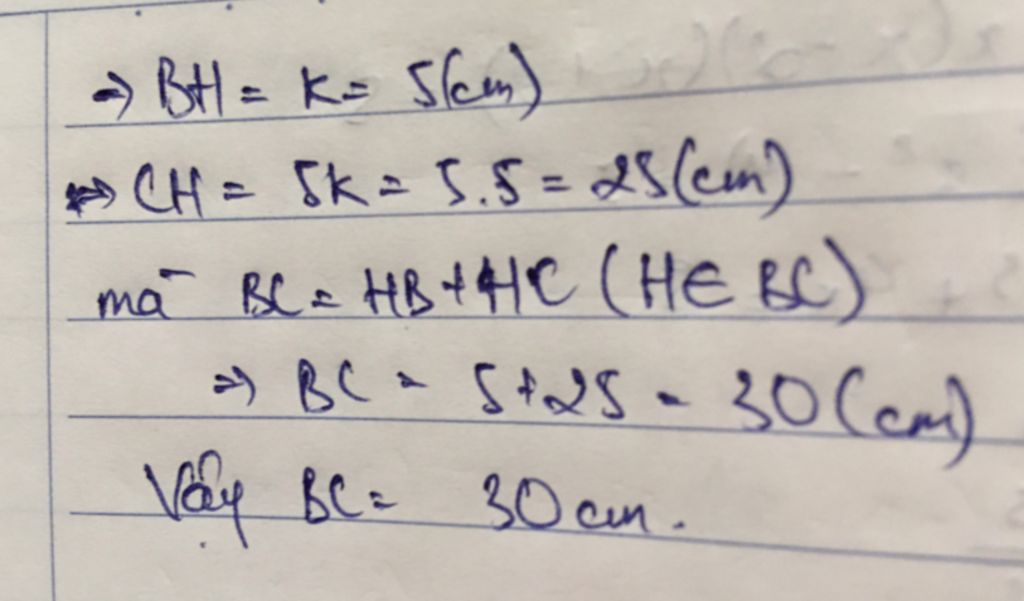 => BH = K = 5(cm)
=> CH = 5K = 5.5 = 25(cm)
mà BC = HB + HC (H ∈ BC)
=> BC = 5+25 = 30(cm)
Vậy BC = 30cm.